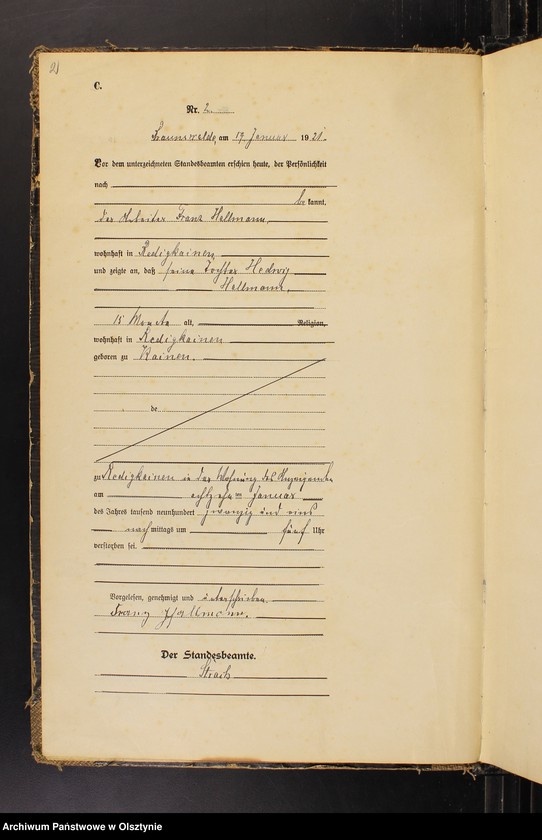 2
C.
Nr. 2.
am 19 Januar 1921.
Vor dem unterzeichneten Standesbeamten erschien heute, der Persönlichkeit
nach
be kannt,
der Arbeiter Franz Hellmann,
wohnhaft in Rodigkainen,
und zeigte an, daß seine Tochter Hedwig
Hellmann,
15 Monate alt, Religion,
wohnhaft in Rodigkainen
geboren zu Kainen.
de
zu Rodigkainen in der Wohnung des Anzeigenden
am achtzehnten Januar
des Jahres tausend neunhundert zwanzig und eins
nach mittags um fünf Uhr
verstorben sei.
Vorgelesen, genehmigt und unterschrieben.
Franz Hellmann.
Der Standesbeamte.
Archiwum Państwowe w Olsztynie